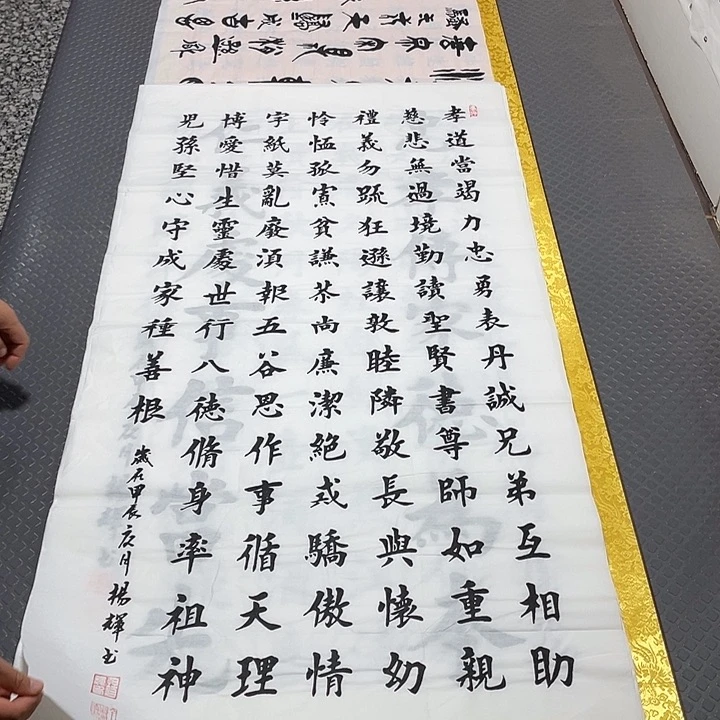 孝道當竭力忠勇表丹誠兄弟互相助
慈悲無過境勤讀聖賢書尊師如重親
禮義勿疏狂遜讓敦睦隣敬長與懷幼
怜恤孤寡貧謙恭尚廉潔絕戒驕傲情
字紙莫亂廢須報五谷恩作事循天理
博愛惜生靈處世行八徳脩身率祖神
児孫堅心守成家種善根
歲在甲辰夏月楊輝书